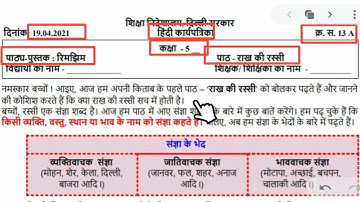 शिक्षा निदेशालय, दिल्ली सरकार
दिनांक 19.04.2021 हिंदी कार्यपत्रिका क्र. स. 13 A
कक्षा - 5
पाठ्य-पुस्तक : रिमझिम पाठ - राख की रस्सी
विद्यार्थी का नाम - शिक्षक/ शिक्षिका का नाम -
नमस्कार बच्चों ! आइए, आज हम अपनी किताब के पहले पाठ – 'राख की रस्सी' को बोलकर पढ़ते हैं और जानने
की कोशिश करते हैं कि क्या राख की रस्सी सच में होती है।
बच्चों, रस्सी एक संज्ञा शब्द है। आज हम पाठ में आए संज्ञा के बारे में कुछ बातें करेंगे। हम पढ़ चुके हैं कि
किसी व्यक्ति, वस्तु, स्थान या भाव के नाम को संज्ञा कहते हैं। अब हम संज्ञा के भेदों के बारे में पढ़ते हैं।
संज्ञा के भेद
व्यक्तिवाचक संज्ञा जातिवाचक संज्ञा भाववाचक संज्ञा
(मोहन, शेर, केला, दिल्ली, (जानवर, फल, शहर, अनाज (मोटापा, अच्छाई, बचपन,
बाजरा आदि । आदि) चालाकी आदि ।